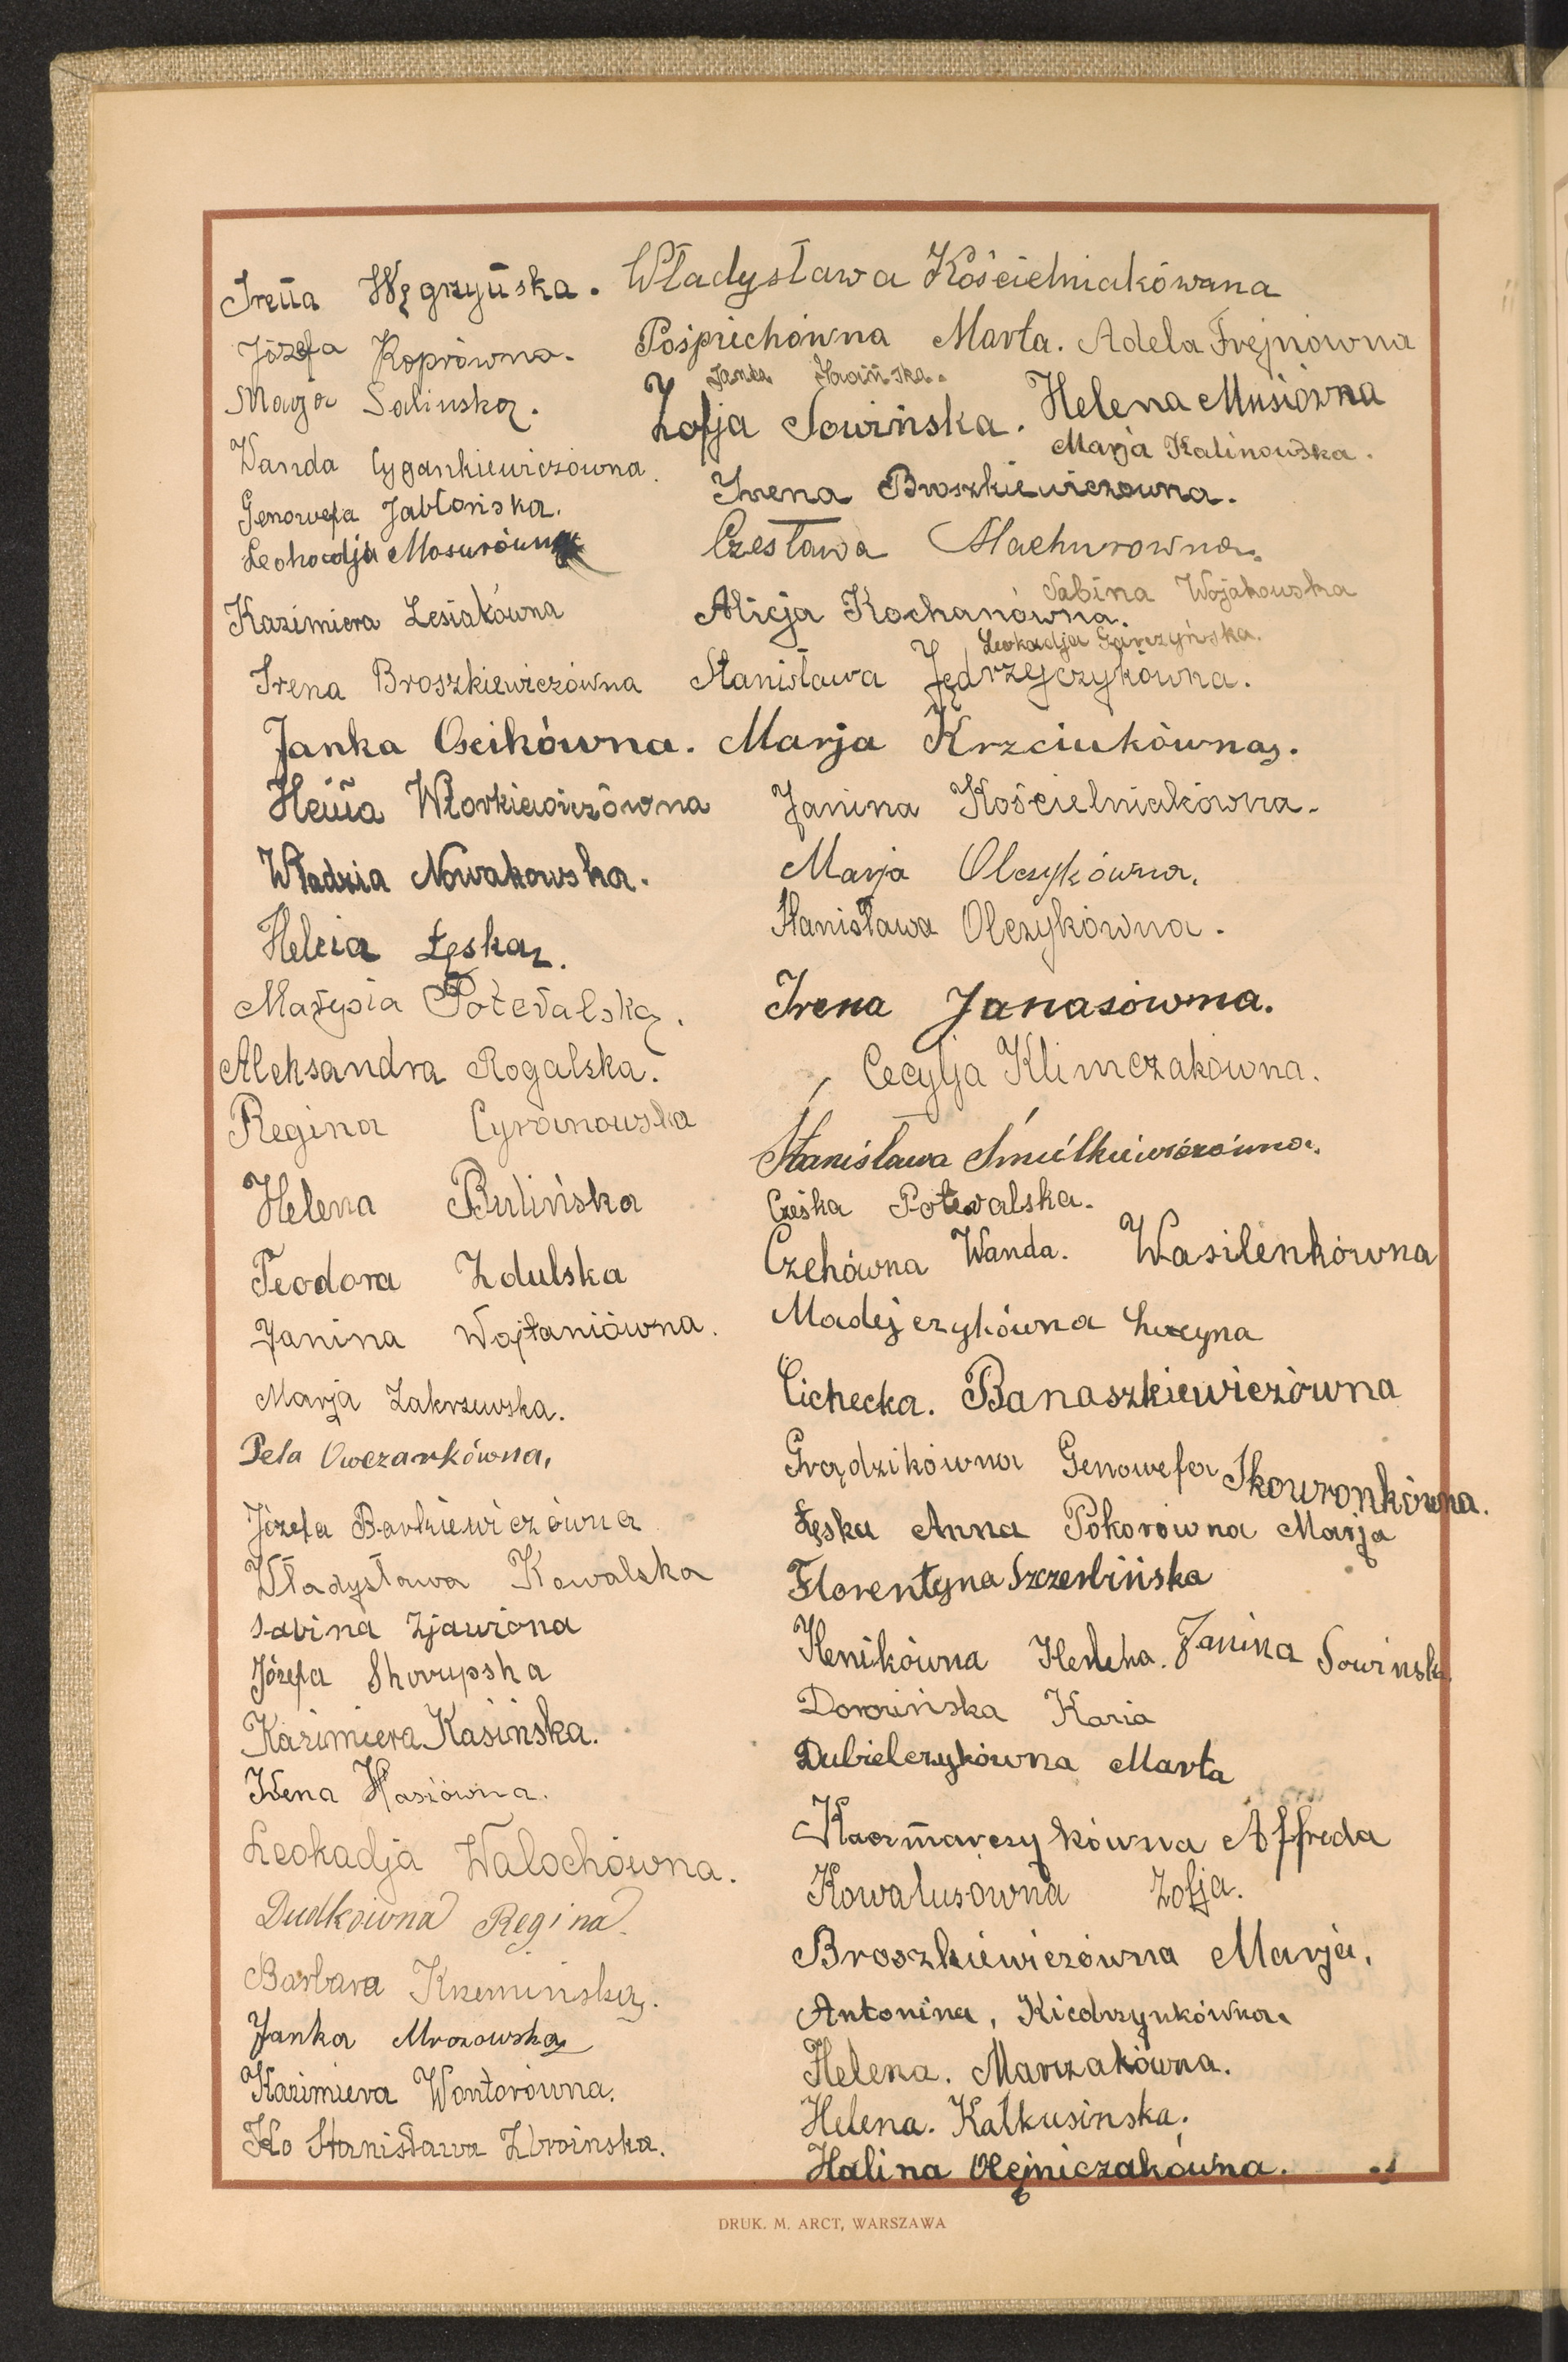 Irena Węgrzyńska.
Józefa Koprówna.
Marja Salinska.
Wanda Cygankiewiczówna.
Genowefa Jabłońska.
Leokadja Mosurówna
Kazimiera Lesiakówna
Irena Broszkiewiczówna
Janka Osikówna.
Henia Włorkiewiczówna
Władzia Nowakowska.
Helcia Łęska.
Marysia Potevalska.
Aleksandra Rogalska.
Regina Cyranowska
Helena Bulińska
Teodora Zdulska
Janina Wojtaniówna.
Marja Zakrzewska.
Pela Owczarkówna,
Józefa Barkiewiczówna
Władysława Kowalska
Sabina Zjawiona
Józefa Skorupska
Kazimiera Kasińska.
Irena Wasiówna.
Leokadja Walochówna.
Dudkówna Regina.
Barbara Krzemińska.
Janka Mrozowska
Kazimiera Wontorówna.
Stanisława Zbroinska.
Władysława Kościelniakówna
Pośpiechówna Marta. Adela Frejnówna
Janka
Zofja Sowińska. Helena Musiówna
Marja Kalinowska.
Irena Broszkiewiczowna.
Czesława Machurowna.
Sabina Wojakowska
Alicja Kochanówna.
Leokadja Garczyńska.
Stanisława Jędrzejczykówna.
Marja Krzciukówna.
Janina Kościelniakówna.
Marja Olczykówna.
Stanisława Olczykówna.
Irena Janasówna.
Cecylja Klimczakówna.
Stanisława Śmiełkiewiczówna.
Cześka Potevalska.
Czehówna Wanda. Wasilenkówna
Madejczykówna Lucyna
Cichecka. Banaszkiewiczówna
Grądzikówna Genowefa Skowronkówna.
Łęska Anna Pokorówna Marja
Florentyna Szczerbińska
Henikówna Helenka. Janina Sowinska
Dorocińska Kazia
Dubielczykówna Marta
Kaczmarczykówna Alfreda
Kowalusówna Zofja.
Broszkiewiczówna Marja.
Antonina, Kiedrzynkówna.
Helena. Marczakówna.
Helena. Kałkusinska.
Halina Olejniczakówna.
DRUK. M. ARCT, WARSZAWA